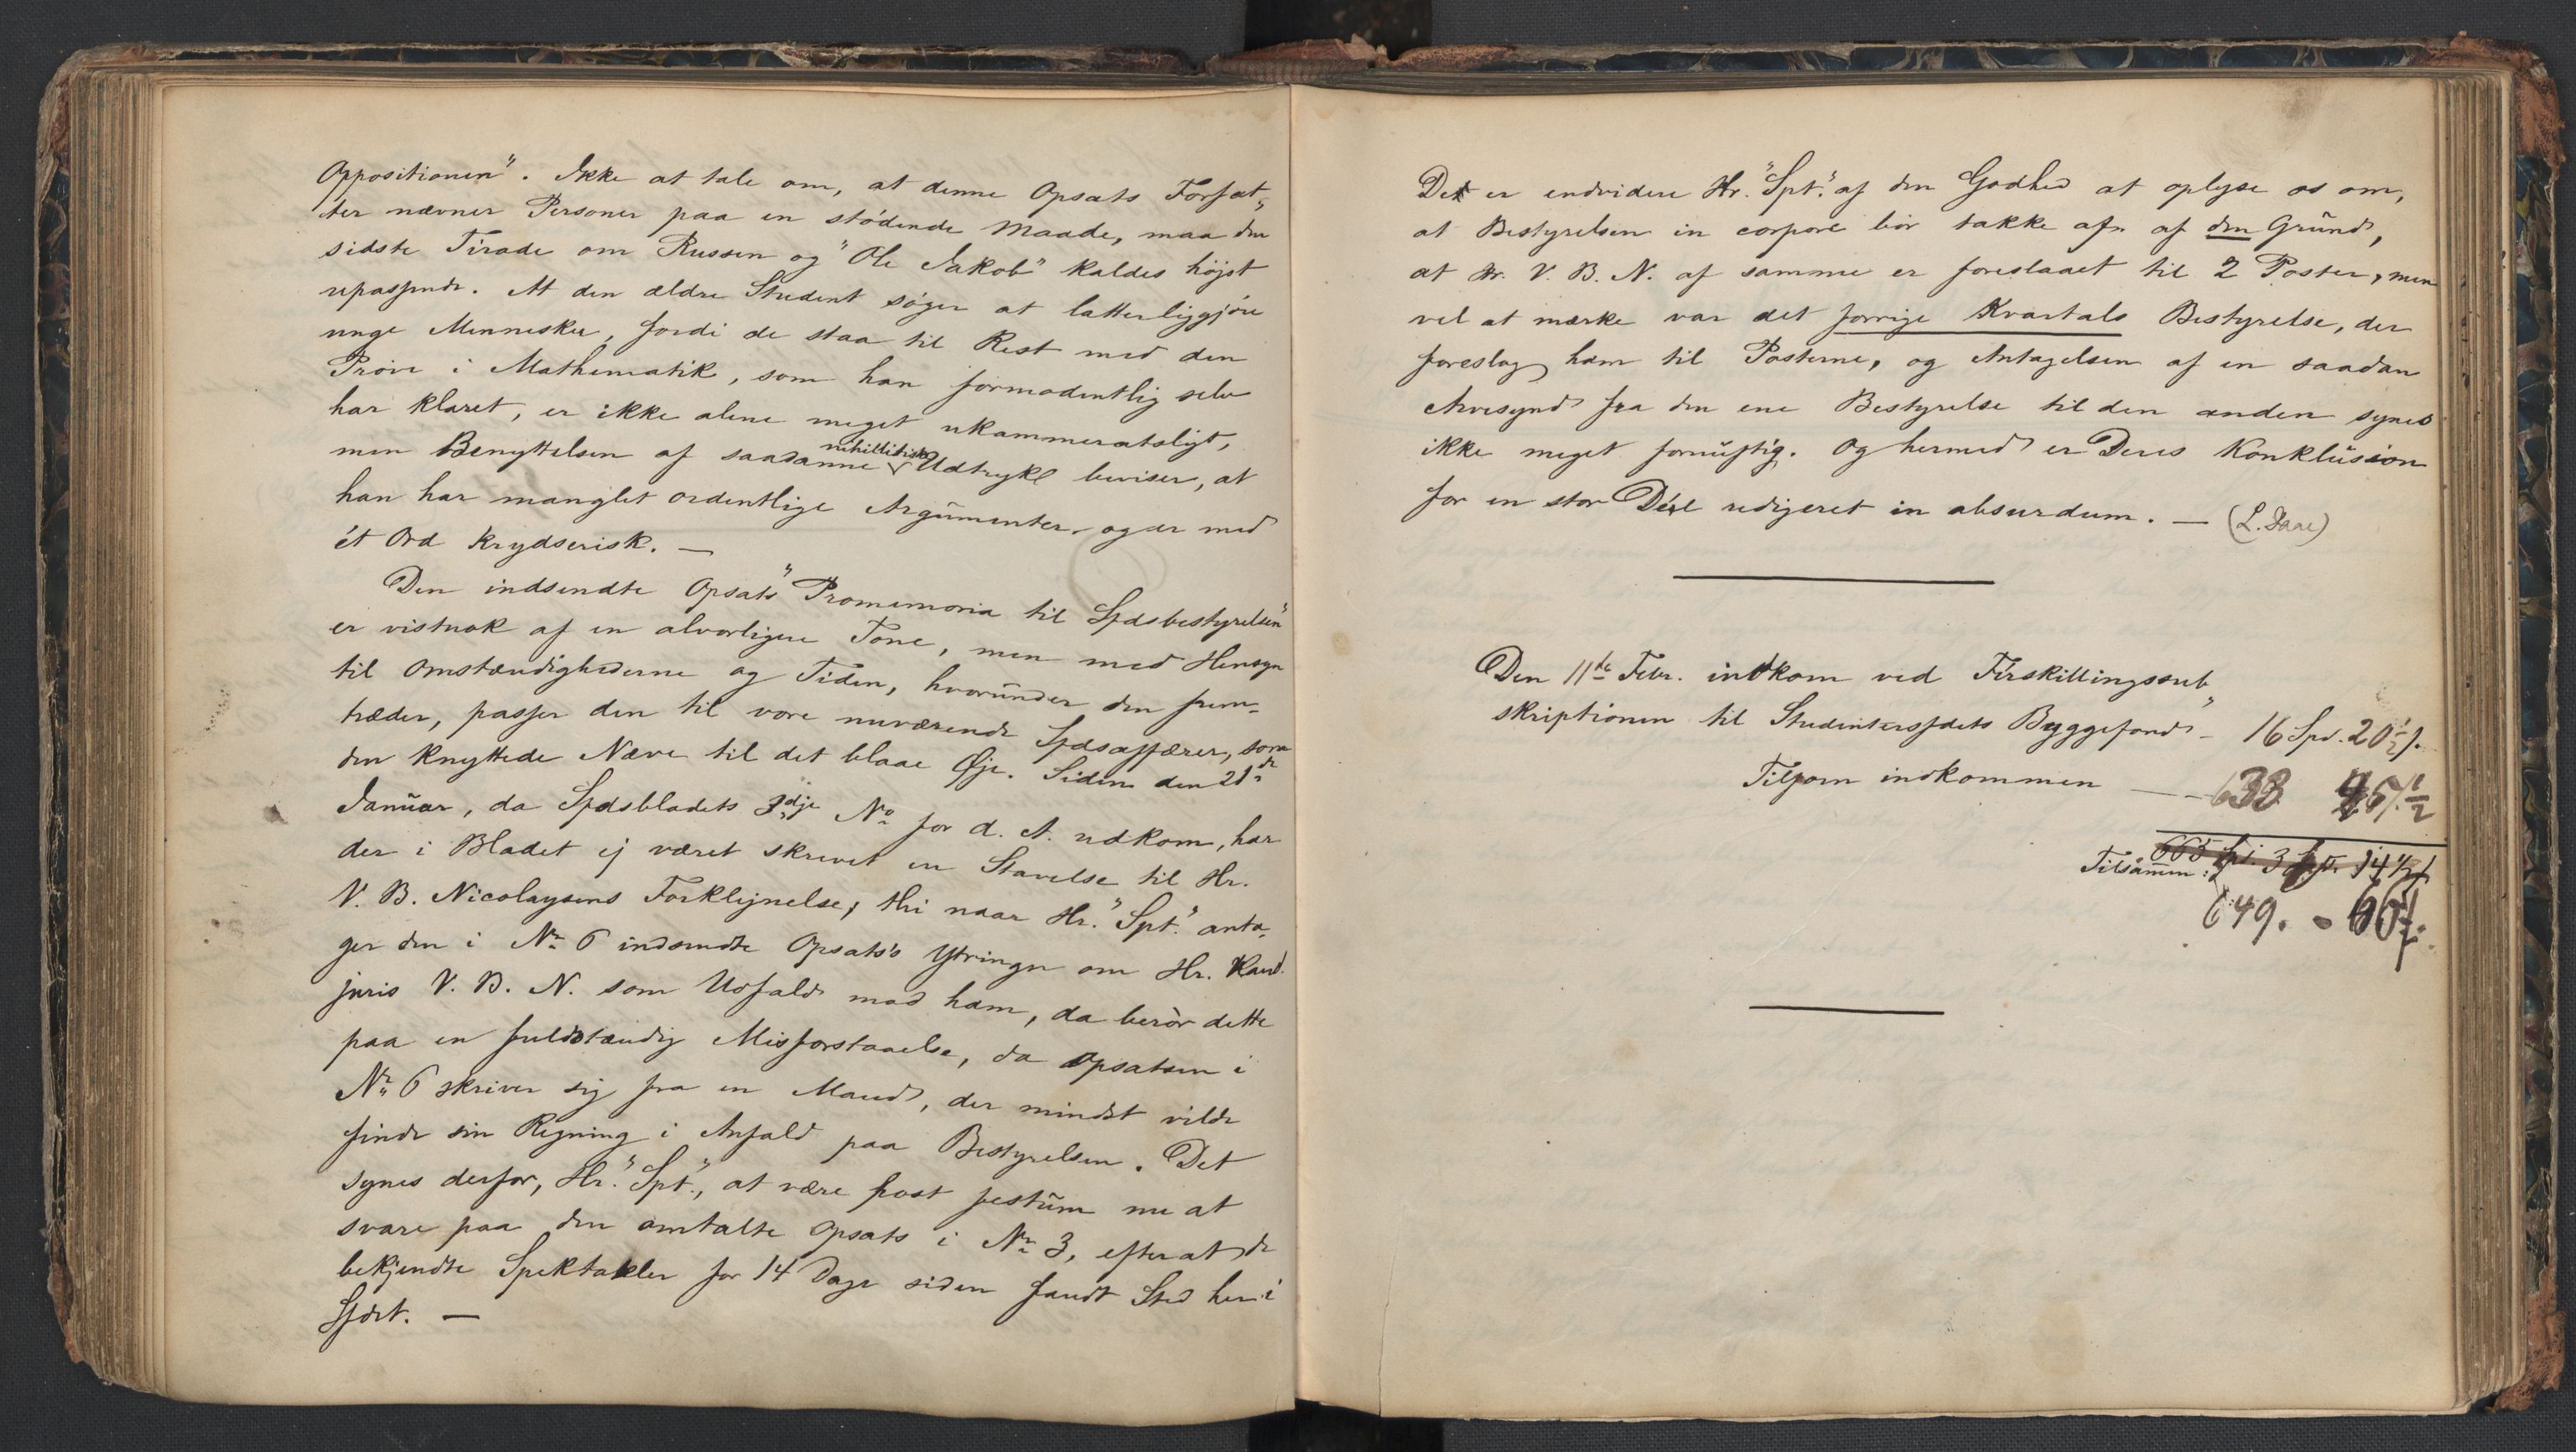 Oppositionen". Ikke at tale om, at denne Opsats Forfat-
ter nævner Personer paa en stødende Maade, maa den
sidste Tirade om Russen og "Ole Jakob" kaldes højst
upassende. At den ældre Student søger at latterliggjøre
unge Mennesker, fordi de staa til Rest med den
Prøve i Mathematik, som han formodentlig selv
har klaret, er ikke alene meget ukammeratsligt,
men Benyttelsen af saadanne nihilistiske Udtryk beviser, at
han har manglet ordentlige Argumenter og er med
ét Ord krydserisk. —
Den indsendte Opsats "Promemoria til Sfdsbestyrelsen"
er vistnok af en alvorligere Tone, men med Hensyn
til Omstændighederne og Tiden, hvorunder den frem-
træder, passer den til vore nuværende Sfdsaffærer, som
den knyttede Næve til det blaae Øje. Siden den 21de
Januar, da Sfdsbladets 3dje No for d. A. udkom, har
der i Bladet ej været skrevet en Stavelse til Hr.
V. B. Nicolaysens Forklejnelse, thi naar Hr. "Spt." anta-
ger den i Nr. 6 indsendte Opsats's Ytringer om Hr. Kand.
juris V. B. N. som Udfald mod ham, da berør dette
paa en fuldstændig Misforstaaelse, da Opsatsen i
Nr. 6 skriver sig fra en Mand, der mindst vilde
finde sin Regning i Anfald paa Bestyrelsen. Det
synes derfor, Hr. "Spt.", at være post festum nu at
svare paa den omtalte Opsats i Nr. 3, efterat de
bekjendte Spektakler for 14 Dage siden fandt Sted her i
Sfdet. —
Det er endvidere Hr. "Spt." af den Godhed at oplyse os om,
at Bestyrelsen in corpore bør takke af af den Grund,
at Hr. V. B. N. af samme er foreslaaet til 2 Poster, men
vel at mærke var det forrige Kvartals Bestyrelse, der
foreslog ham til Posterne, og Antagelsen af en saadan
Arvesynd fra den ene Bestyrelse til den anden synes
ikke meget fornuftig. Og hermed er Deres Konklusion
for en stor Deel redigeret in absurdum. — (L. Daae)
Den 11te Febr. indkom ved Firskillingssub
skriptionen til Studentersfdets Byggefond - 16 Spd. 20½ s.
Tilforn indkommen — 633 45½
Tilsammen: 665 Spd. 3 14½ s
649. - 66 s.